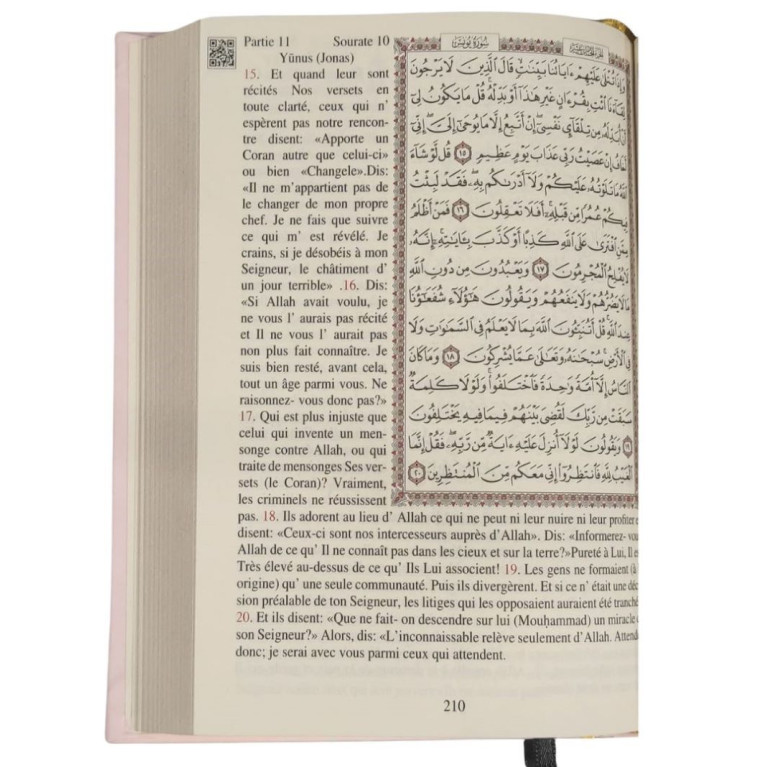 Partie 11 Sourate 10
Yūnus (Jonas)
15. Et quand leur sont
récités Nos versets en
toute clarté, ceux qui n’
espèrent pas notre rencon-
tre disent: «Apporte un
Coran autre que celui-ci»
ou bien «Changele».Dis:
«Il ne m’appartient pas de
le changer de mon propre
chef. Je ne fais que suivre
ce qui m’ est révélé. Je
crains, si je désobéis à mon
Seigneur, le châtiment d’
un jour terrible» .16. Dis:
«Si Allah avait voulu, je
ne vous l’ aurais pas récité
et Il ne vous l’ aurait pas
non plus fait connaître. Je
suis bien resté, avant cela,
tout un âge parmi vous. Ne
raisonnez- vous donc pas?»
17. Qui est plus injuste que
celui qui invente un men-
songe contre Allah, ou qui
traite de mensonges Ses ver-
sets (le Coran)? Vraiment,
les criminels ne réussissent
سُورَةُ يُونُسَ
وَإِذَا تُتْلَىٰ عَلَيْهِمْ ءَايَاتُنَا بَيِّنَٰتٍ قَالَ ٱلَّذِينَ لَا يَرْجُونَ
لِقَآءَنَا ٱئْتِ بِقُرْءَانٍ غَيْرِ هَٰذَآ أَوْ بَدِّلْهُ قُلْ مَا يَكُونُ لِىٓ
أَنْ أُبَدِّلَهُۥ مِن تِلْقَآئِ نَفْسِىٓ إِنْ أَتَّبِعُ إِلَّا مَا يُوحَىٰٓ إِلَىَّ إِنِّىٓ
أَخَافُ إِنْ عَصَيْتُ رَبِّى عَذَابَ يَوْمٍ عَظِيمٍ ١٥ قُل لَّوْ شَآءَ
ٱللَّهُ مَا تَلَوْتُهُۥ عَلَيْكُمْ وَلَآ أَدْرَىٰكُم بِهِۦ فَقَدْ لَبِثْتُ
فِيكُمْ عُمُرًا مِّن قَبْلِهِۦٓ أَفَلَا تَعْقِلُونَ ١٦ فَمَنْ أَظْلَمُ
مِمَّنِ ٱفْتَرَىٰ عَلَى ٱللَّهِ كَذِبًا أَوْ كَذَّبَ بِـَٔايَٰتِهِۦٓ إِنَّهُۥ
لَا يُفْلِحُ ٱلْمُجْرِمُونَ ١٧ وَيَعْبُدُونَ مِن دُونِ ٱللَّهِ
مَا لَا يَضُرُّهُمْ وَلَا يَنفَعُهُمْ وَيَقُولُونَ هَٰٓؤُلَآءِ شُفَعَٰٓؤُنَا
عِندَ ٱللَّهِ قُلْ أَتُنَبِّـُٔونَ ٱللَّهَ بِمَا لَا يَعْلَمُ فِى ٱلسَّمَٰوَٰتِ وَلَا
فِى ٱلْأَرْضِ سُبْحَٰنَهُۥ وَتَعَٰلَىٰ عَمَّا يُشْرِكُونَ ١٨ وَمَا كَانَ
ٱلنَّاسُ إِلَّآ أُمَّةً وَٰحِدَةً فَٱخْتَلَفُوا۟ وَلَوْلَا كَلِمَةٌ
سَبَقَتْ مِن رَّبِّكَ لَقُضِىَ بَيْنَهُمْ فِيمَا فِيهِ يَخْتَلِفُونَ
١٩ وَيَقُولُونَ لَوْلَآ أُنزِلَ عَلَيْهِ ءَايَةٌ مِّن رَّبِّهِۦ فَقُلْ إِنَّمَا
ٱلْغَيْبُ لِلَّهِ فَٱنتَظِرُوٓا۟ إِنِّى مَعَكُم مِّنَ ٱلْمُنتَظِرِينَ ٢٠
pas. 18. Ils adorent au lieu d’ Allah ce qui ne peut ni leur nuire ni leur profiter
disent: «Ceux-ci sont nos intercesseurs auprès d’Allah». Dis: «Informerez- vou
Allah de ce qu’ Il ne connaît pas dans les cieux et sur la terre?»Pureté à Lui, Il e
Très élevé au-dessus de ce qu’ Ils Lui associent! 19. Les gens ne formaient (à
origine) qu’ une seule communauté. Puis ils divergèrent. Et si ce n’ était une déc
sion préalable de ton Seigneur, les litiges qui les opposaient auraient été tranché
20. Et ils disent: «Que ne fait- on descendre sur lui (Mouḥammad) un miracle
son Seigneur?» Alors, dis: «L’inconnaissable relève seulement d’Allah. Attend
donc; je serai avec vous parmi ceux qui attendent.
210